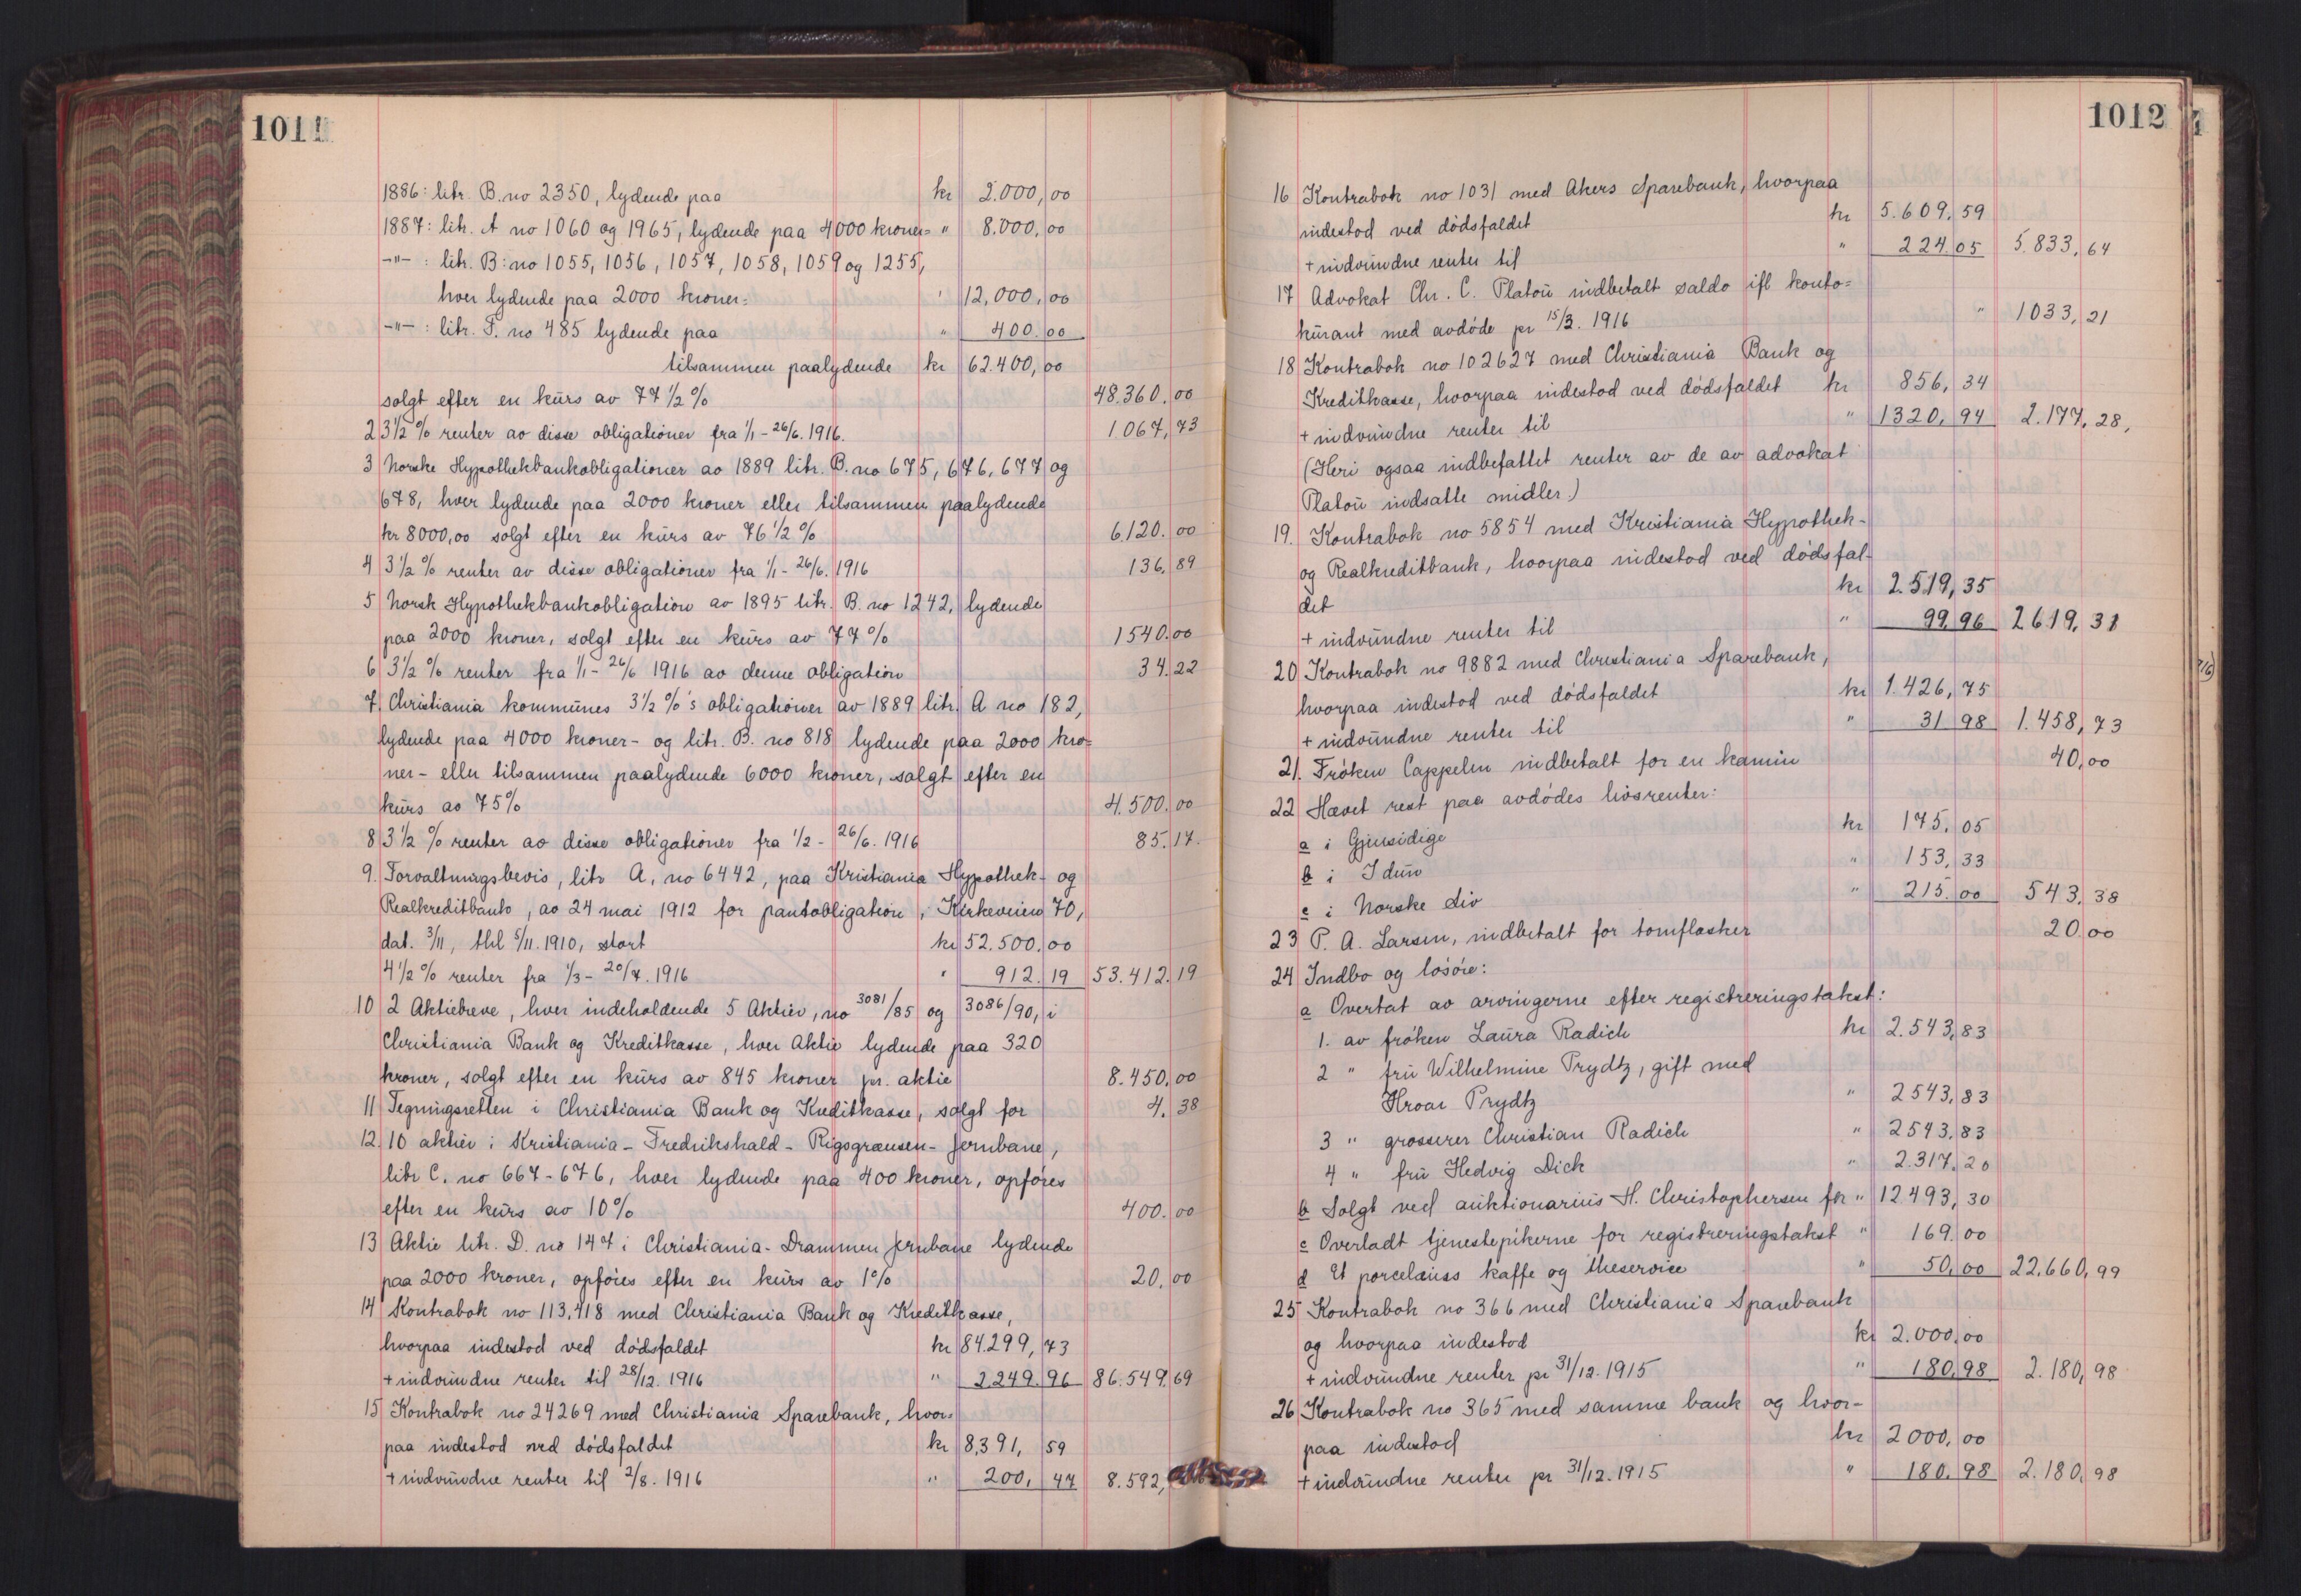 1011
1886: litr. B. no 2350, lydende paa kr 2.000,00
1887: litr. A no 1060 og 1965, lydende paa 4000 kroner= " 8.000,00
-"- : litr. B: no 1055, 1056, 1057, 1058, 1059 og 1255,
hver lydende paa 2000 kroner= ' 12,000,00
-"- : litr. F. no 485 lydende paa " 400.00
tilsammen paalydende kr 62.400,00
solgt efter en kurs av 77 1/2 % 48.360.00
2 3 1/2 % renter av disse obligationer fra 1/1 - 26/6. 1916. 1.067,73
3 Norske Hypothekbankobligationer av 1889 litr. B. no 675, 676, 677 og
678, hver lydende paa 2000 kroner eller tilsammen paalydende
kr 8000,00 solgt efter en kurs av 76 1/2 % 6.120.00
4 3 1/2 % renter av disse obligationer fra 1/1 - 26/6. 1916 136,89
5 Norsk Hypothekbankobligation av 1895 litr. B. no 1242, lydende
paa 2000 kroner, solgt efter en kurs av 77 % 1540.00
6 3 1/2 % renter fra 1/1 - 26/6 1916 av denne obligation 34.22
7. Christiania kommunes 3 1/2 %'s obligationer av 1889 litr. A no 182,
lydende paa 4000 kroner- og litr. B. no 818 lydende paa 2000 kro=
ner- eller tilsammen paalydende 6000 kroner, solgt efter en
kurs av 75% 4.500.00
8 3 1/2 % renter av disse obligationer fra 1/2 - 26/6. 1916 85.17.
9. Forvaltningsbevis, litr A, no 6442, paa Kristiania Hypothek- og
Realkreditbank, av 24 mai 1912 for pantobligation i Kirkeveien 70,
dat. 3/11, thl 5/11. 1910, stort kr 52.500.00
4 1/2 % renter fra 1/3 - 20/7. 1916 " 912.19 53.412.19
10 2 Aktiebreve, hver indeholdende 5 Aktier, no 3081/85 og 3086/90, i
Christiania Bank og Kreditkasse, hver Aktie lydende paa 320
kroner, solgt efter en kurs av 845 kroner pr. aktie 8.450.00
11 Tegningsretten i Christiania Bank og Kreditkasse, solgt for 4.38
12. 10 aktier i Kristiania - Fredrikshald - Rigsgrænsen - Jernbane,
litr C. no 667-676, hver lydende paa 400 kroner, opføres
efter en kurs av 10% 400.00
13 Aktie litr. D. no 147 i Christiania-Drammen jernbane lydende
paa 2000 kroner, opføres efter en kurs av 1% 20.00
14 Kontrabok no 113.418 med Christiania Bank og Kreditkasse,
hvorpaa indestod ved dødsfaldet kr 84.299,73
+ indvundne renter til 28/12. 1916 " 2.249.96 86.549.69
15 Kontrabok no 24269 med Christiania Sparebank, hvor=
paa indestod ved dødsfaldet kr 8,391,59
+ indvundne renter til 2/8. 1916 " 200,47 8.592,
1012
16 Kontrabok no 1031 med Akers Sparebank, hvorpaa
indestod ved dødsfaldet kr 5.609.59
+ indvundne renter til " 224.05 5.833,64
17 Advokat Chr. C. Platou indbetalt saldo ifl konto=
kurant med avdøde pr 15/3. 1916 " 1033,21
18 Kontrabok no 102627 med Christiania Bank og
Kreditkasse, hvorpaa indestod ved dødsfaldet kr 856,34
+ indvundne renter til " 1320,94 2.177,28,
(Heri ogsaa indbefattet renter av de av advokat
Platou indsatte midler.)
19. Kontrabok no 5854 med Kristiania Hypothek-
og Realkreditbank, hvorpaa indestod ved dødsfal-
det kr 2.519,35
+ indvundne renter til " 99.96 2619,31
20 Kontrabok no 9882 med Christiania Sparebank,
hvorpaa indestod ved dødsfaldet kr 1.426,75
+ indvundne renter til " 31.98 1.458,73
21. Frøken Cappelen indbetalt for en kamin 40,00
22 Hævet rest paa avdødes livsrenter:
a i Gjensidige kr 175.05
b i Idun " 153.33
c i Norske Liv " 215.00 543.38
23 P. A. Larsen, indbetalt for tomflasker 20.00
24 Indbo og løsøre:
a Overtat av arvingerne efter registreringstakst:
1. av frøken Laura Radich kr 2.543,83
2 " fru Wilhelmine Prydtz, gift med
Hroar Prydtz " 2543,83
3 " grosserer Christian Radich " 2543.83
4 " fru Hedvig Dick " 2.317.20
b Solgt ved auktionarius H. Christophersen for " 12.493,30
c Overladt tjenestepikerne for registreringstakst " 169.00
d Et porcelæns kaffe og theservice " 50,00 22.660,99
25 Kontrabok no 366 med Christiania Sparebank
og hvorpaa indestod kr 2.000,00
+ indvundne renter pr 31/12. 1915 " 180,98 2.180,98
26 Kontrabok no 365 med samme bank og hvor-
paa indestod kr 2000,00
+ indvundne renter pr 31/12. 1915 " 180.98 2.180,98